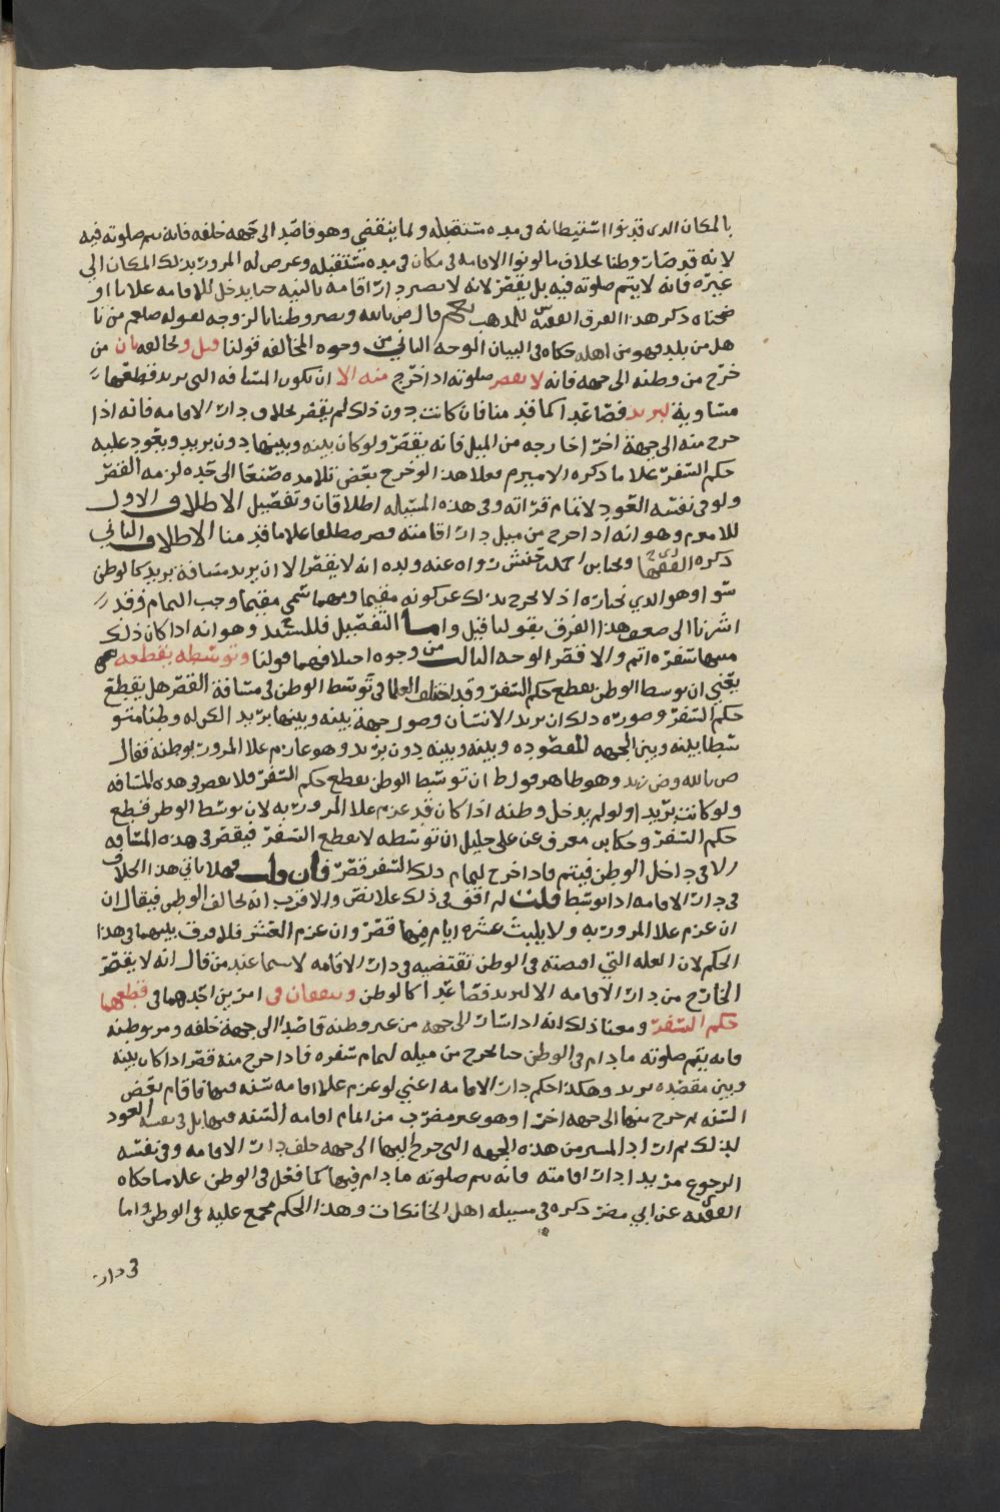 بالمكان الذي قد نوا استيطانه في مده مستقبله ولما ينقضي وهو قاصد الى جهه خلفه فانه يتم صلوته فيه
لانه قد صارت وطنا بخلاف ما لو نوا الاقامه في مكان في مده مستقبله وعرض له المرور بذلك المكان الي
غيره فانه لا يتم صلوته فيه بل يقصر لانه لا يصير دار اقامه بالنيه حتا يدخل للاقامه علا ما او
ضحناه ذكر هذا الفرق الفقيه س للمذهب قال ص بالله ويصير وطنا بالزوجه لقوله صلعم من تا
هل من بلد فهو من اهله حكاه في البيان الوجه الثاني من وجوه المخالفه قولنا قيل وتخالفه بان من
خرج من وطنه الى جهه فانه لا يقصر صلوته اذا خرج منه الا ان تكون المسافه التي يريد قطعها
مساوية لبريد فصاعدا كما قد منا فان كانت دون ذلك لم يقصر بخلاف دار الاقامه فانه اذا
خرج منه الى جهة اخرا خارجه من الميل فانه يقصر ولو كان بينه وبينها دون بريد ويعود عليه
حكم السفر علا ما ذكره الامير م فعلا هذا لو خرج بعض تلامده صنعا الى حده لزمه القصر
ولو في نفسه العود لاتمام قراته وفي هذه المسئله اطلاقان وتفصيل الاطلاق الاول
للامير م وهو انه اذا خرج من ميل دار اقامته قصر مطلقا علا ما قد منا الاطلاق الثاني
ذكره الفقيه وتخابن رواه عنه ولده انه لا يقصر الا ان يريد مسافة بريد كالوطن
سوا وهو الذي نختاره اذ لا يخرج بذلك عن كونه مقيما ومهما سمي مقيما وجب التمام وقد
اشرنا الى ضعف هذا الفرق بقولنا قيل واما التفصيل فللسيد وهو انه اذا كان ذلك
منتها سفره اتم والا قصر الوجه الثالث من وجوه اختلافهما قولنا وتوسطه يقطعه
يعني ان توسط الوطن يقطع حكم السفر وقد اختلف العلما في توسط الوطن في مسافة القصر هل يقطع
حكم السفر وصورة ذلك ان يريد الانسان وصول جهة بينه وبينها بريد الكن له وطنا متو
سطا بينه وبين الجهه المقصوده وبينه وبينه دون بريد وهو عازم علا المرور بوطنه فقال
ص بالله وض زيد وهو ظاهر قول ط ان توسط الوطن يقطع حكم السفر فلا يقصر في هذه المسافه
ولو كانت بريدا ولو لم يدخل وطنه اذا كان قد عزم علا المرور به لان توسط الوطن قطع
حكم السفر وحكا بن معرف عن علي خليل ان توسطه لا يقطع السفر فيقصر في هذه المسافه
الا في داخل الوطن فيتم فاذا خرج لتمام ذلك السفر قصر فان قلت فهلا ياتي هذا الخلاف
في دار الاقامه اذا توسط قلت لم اقف في ذلك علا نص والاقرب انه يخالف الوطن فيقال ان
ان عزم علا المرور به ولا يلبث عشره ايام فيها قصر وان عزم العشر فلا فرق بينهما في هذا
الحكم لان العله التي اقتضته في الوطن تقتضيه في دار الاقامه لا سيما عند من قال انه لا يقصر
الخارج من دار الاقامه الا لبريد فصاعدا كالوطن ويتفقان في امرين احدهما في قطعهما
حكم السفر ومعنا ذلك انه اذا سار الى جهه من غير وطنه قاصدا الى جهة خلفه ومر بوطنه
فانه يتم صلوته ما دام في الوطن حتا يخرج من ميله لتمام سفره فاذا خرج منه قصر اذا كان بينه
وبين مقصده بريد وهكذا حكم دار الاقامه اعني لو عزم علا اقامه سنه فيها فاقام بعض
السنه ثم خرج منها الى جهه اخرا وهو غير مضرب من اتمام اقامه السنه فيها بل في نفسه العود
لذلك ثم اراد المسير من هذه الجهه التي خرج اليها الى جهه خلف دار الاقامه وفي نفسه
الرجوع مزيدا دار اقامته فانه يتم صلوته ما دام فيها كما فعل في الوطن علا ما حكاه
الفقيه عن ابي مضر ذكره في مسيله اهل الخانكات وهذا الحكم مجمع عليه في الوطن واما
في دار